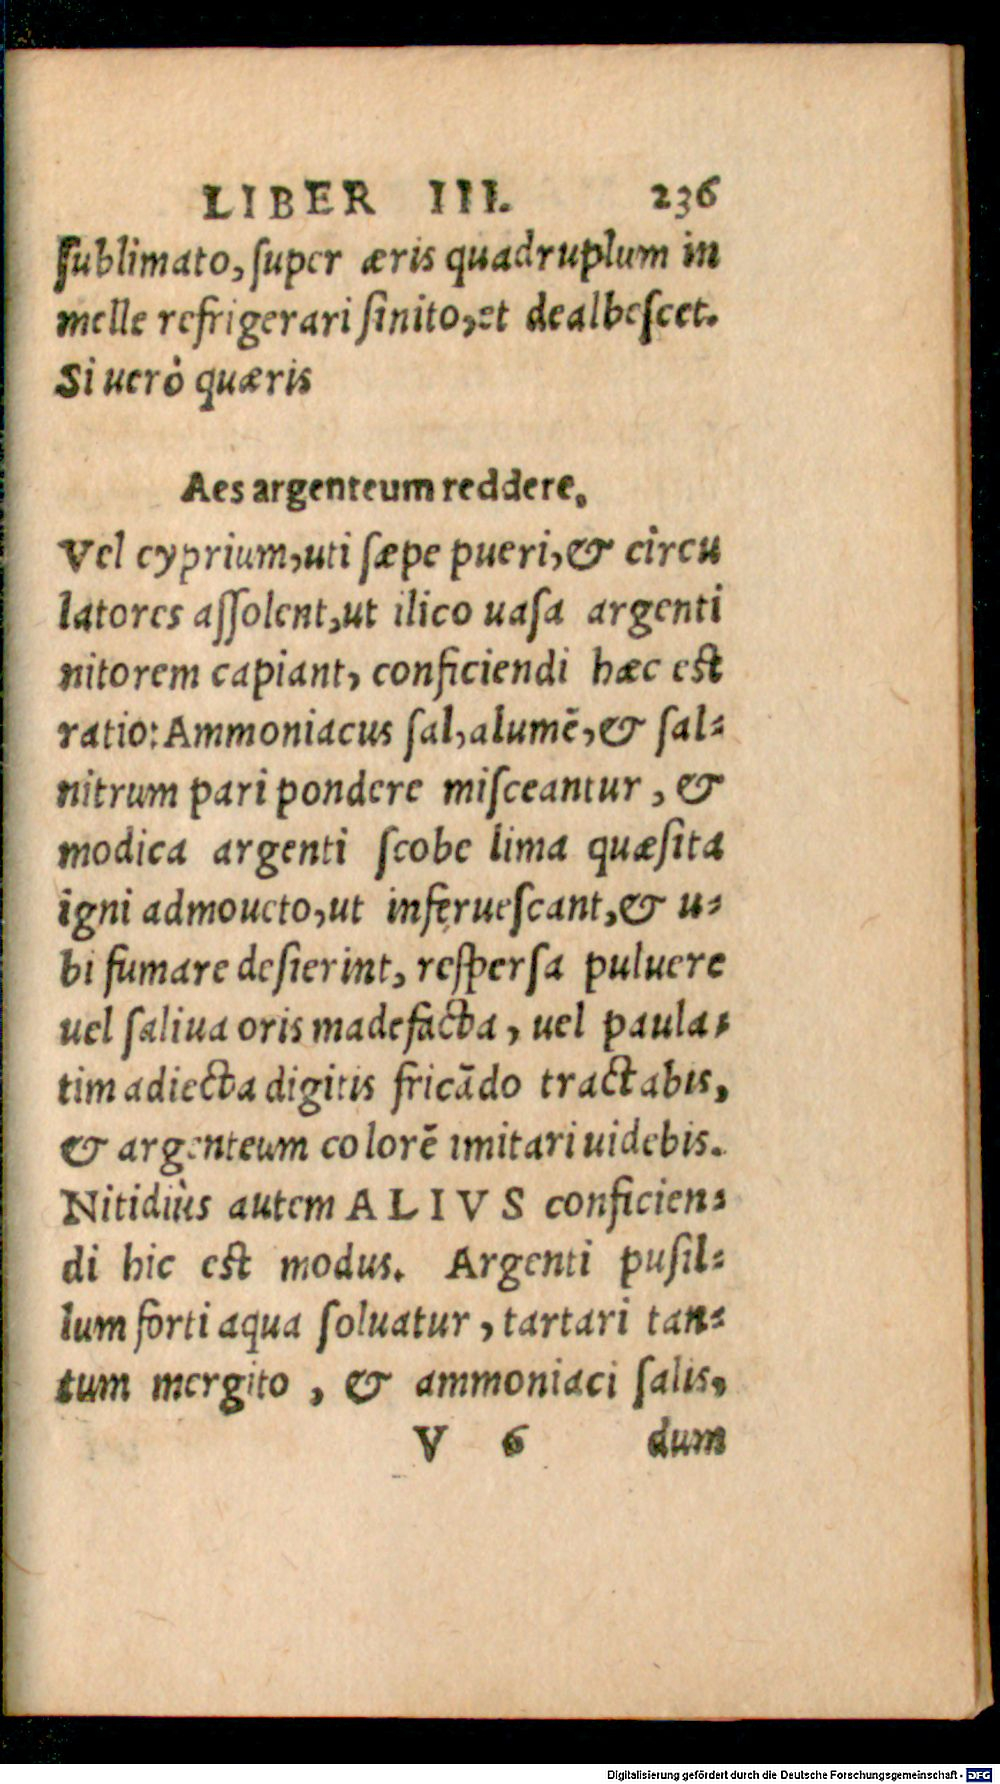 LIBER III. 236
ſublimato, ſuper æris quadruplum in
melle refrigerari ſinito, et dealbeſcet.
Si uerò quæris
Aes argenteum reddere.
Vel cyprium, uti ſæpe pueri, & circu
latores aſſolent, ut ilico uaſa argenti
nitorem capiant, conficiendi hæc est
ratio: Ammoniacus ſal, alumē, & ſal-
nitrum pari pondere miſceantur, &
modica argenti ſcobe lima quæſita
igni admoueto, ut inferueſcant, & u-
bi fumare deſierint, reſperſa puluere
uel ſaliua oris madefacta, uel paula-
tim adiecta digitis fricādo tractabis,
& argenteum colorē imitari uidebis.
Nitidiùs autem ALIVS conficien-
di hic est modus. Argenti puſil-
lum forti aqua ſoluatur, tartari tan-
tum mergito, & ammoniaci ſalis,
V 6 dum
Digitalisierung gefördert durch die Deutsche Forschungsgemeinschaft - DFG